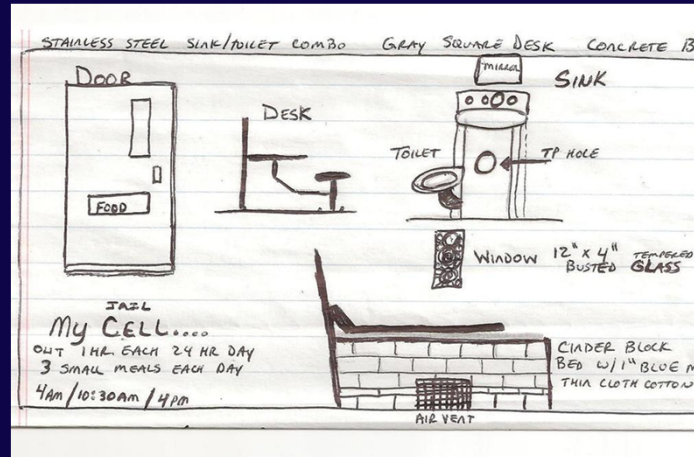 STAINLESS STEEL SINK/TOILET COMBO GRAY SQUARE DESK CONCRETE
MIRROR
DOOR
SINK
DESK
TOILET
TP HOLE
FOOD
WINDOW 12" X 4" TEMPERED
BUSTED GLASS
JAIL
MY CELL....
OUT 1HR EACH 24 HR DAY
3 SMALL MEALS EACH DAY
4AM/10:30AM/4PM
CINDER BLOCK
BED W/1" BLUE
THIN CLOTH COTTON
AIR VENT